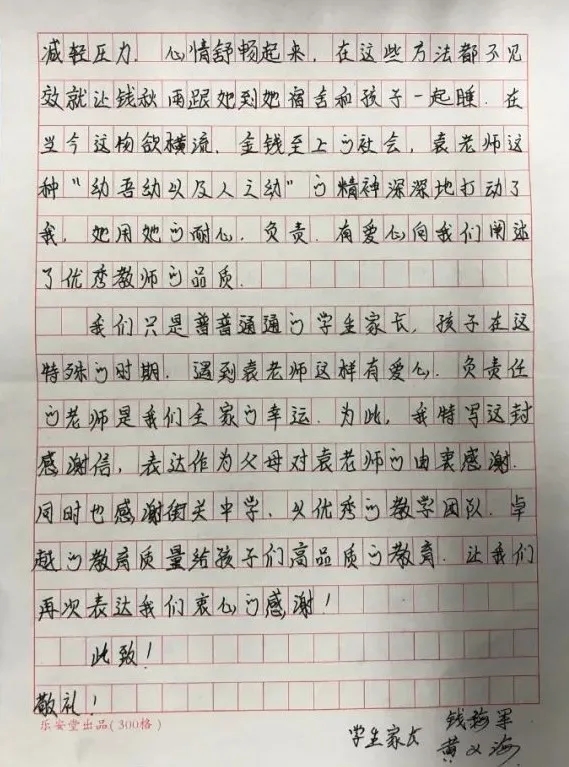 减轻压力. 心情舒畅起来, 在这些方法都不见
效就让钱秋雨跟她到她宿舍和孩子一起睡. 在
当今这物欲横流, 金钱至上的社会, 袁老师这
种“幼吾幼以及人之幼”的精神深深地打动了
我, 她用她的耐心. 负责. 有爱心向我们阐述
了优秀教师的品质.
我们只是普普通通的学生家长, 孩子在这
特殊的时期. 遇到袁老师这样有爱心. 负责任
的老师是我们全家的幸运. 为此, 我特写这封
感谢信, 表达作为父母对袁老师的由衷感谢.
同时也感谢街关中学, 以优秀的教学团队. 卓
越的教育质量给孩子们高品质的教育. 让我们
再次表达我们衷心的感谢!
此致!
敬礼!
乐安堂出品(300格)
学生家长 钱海军
黄 海